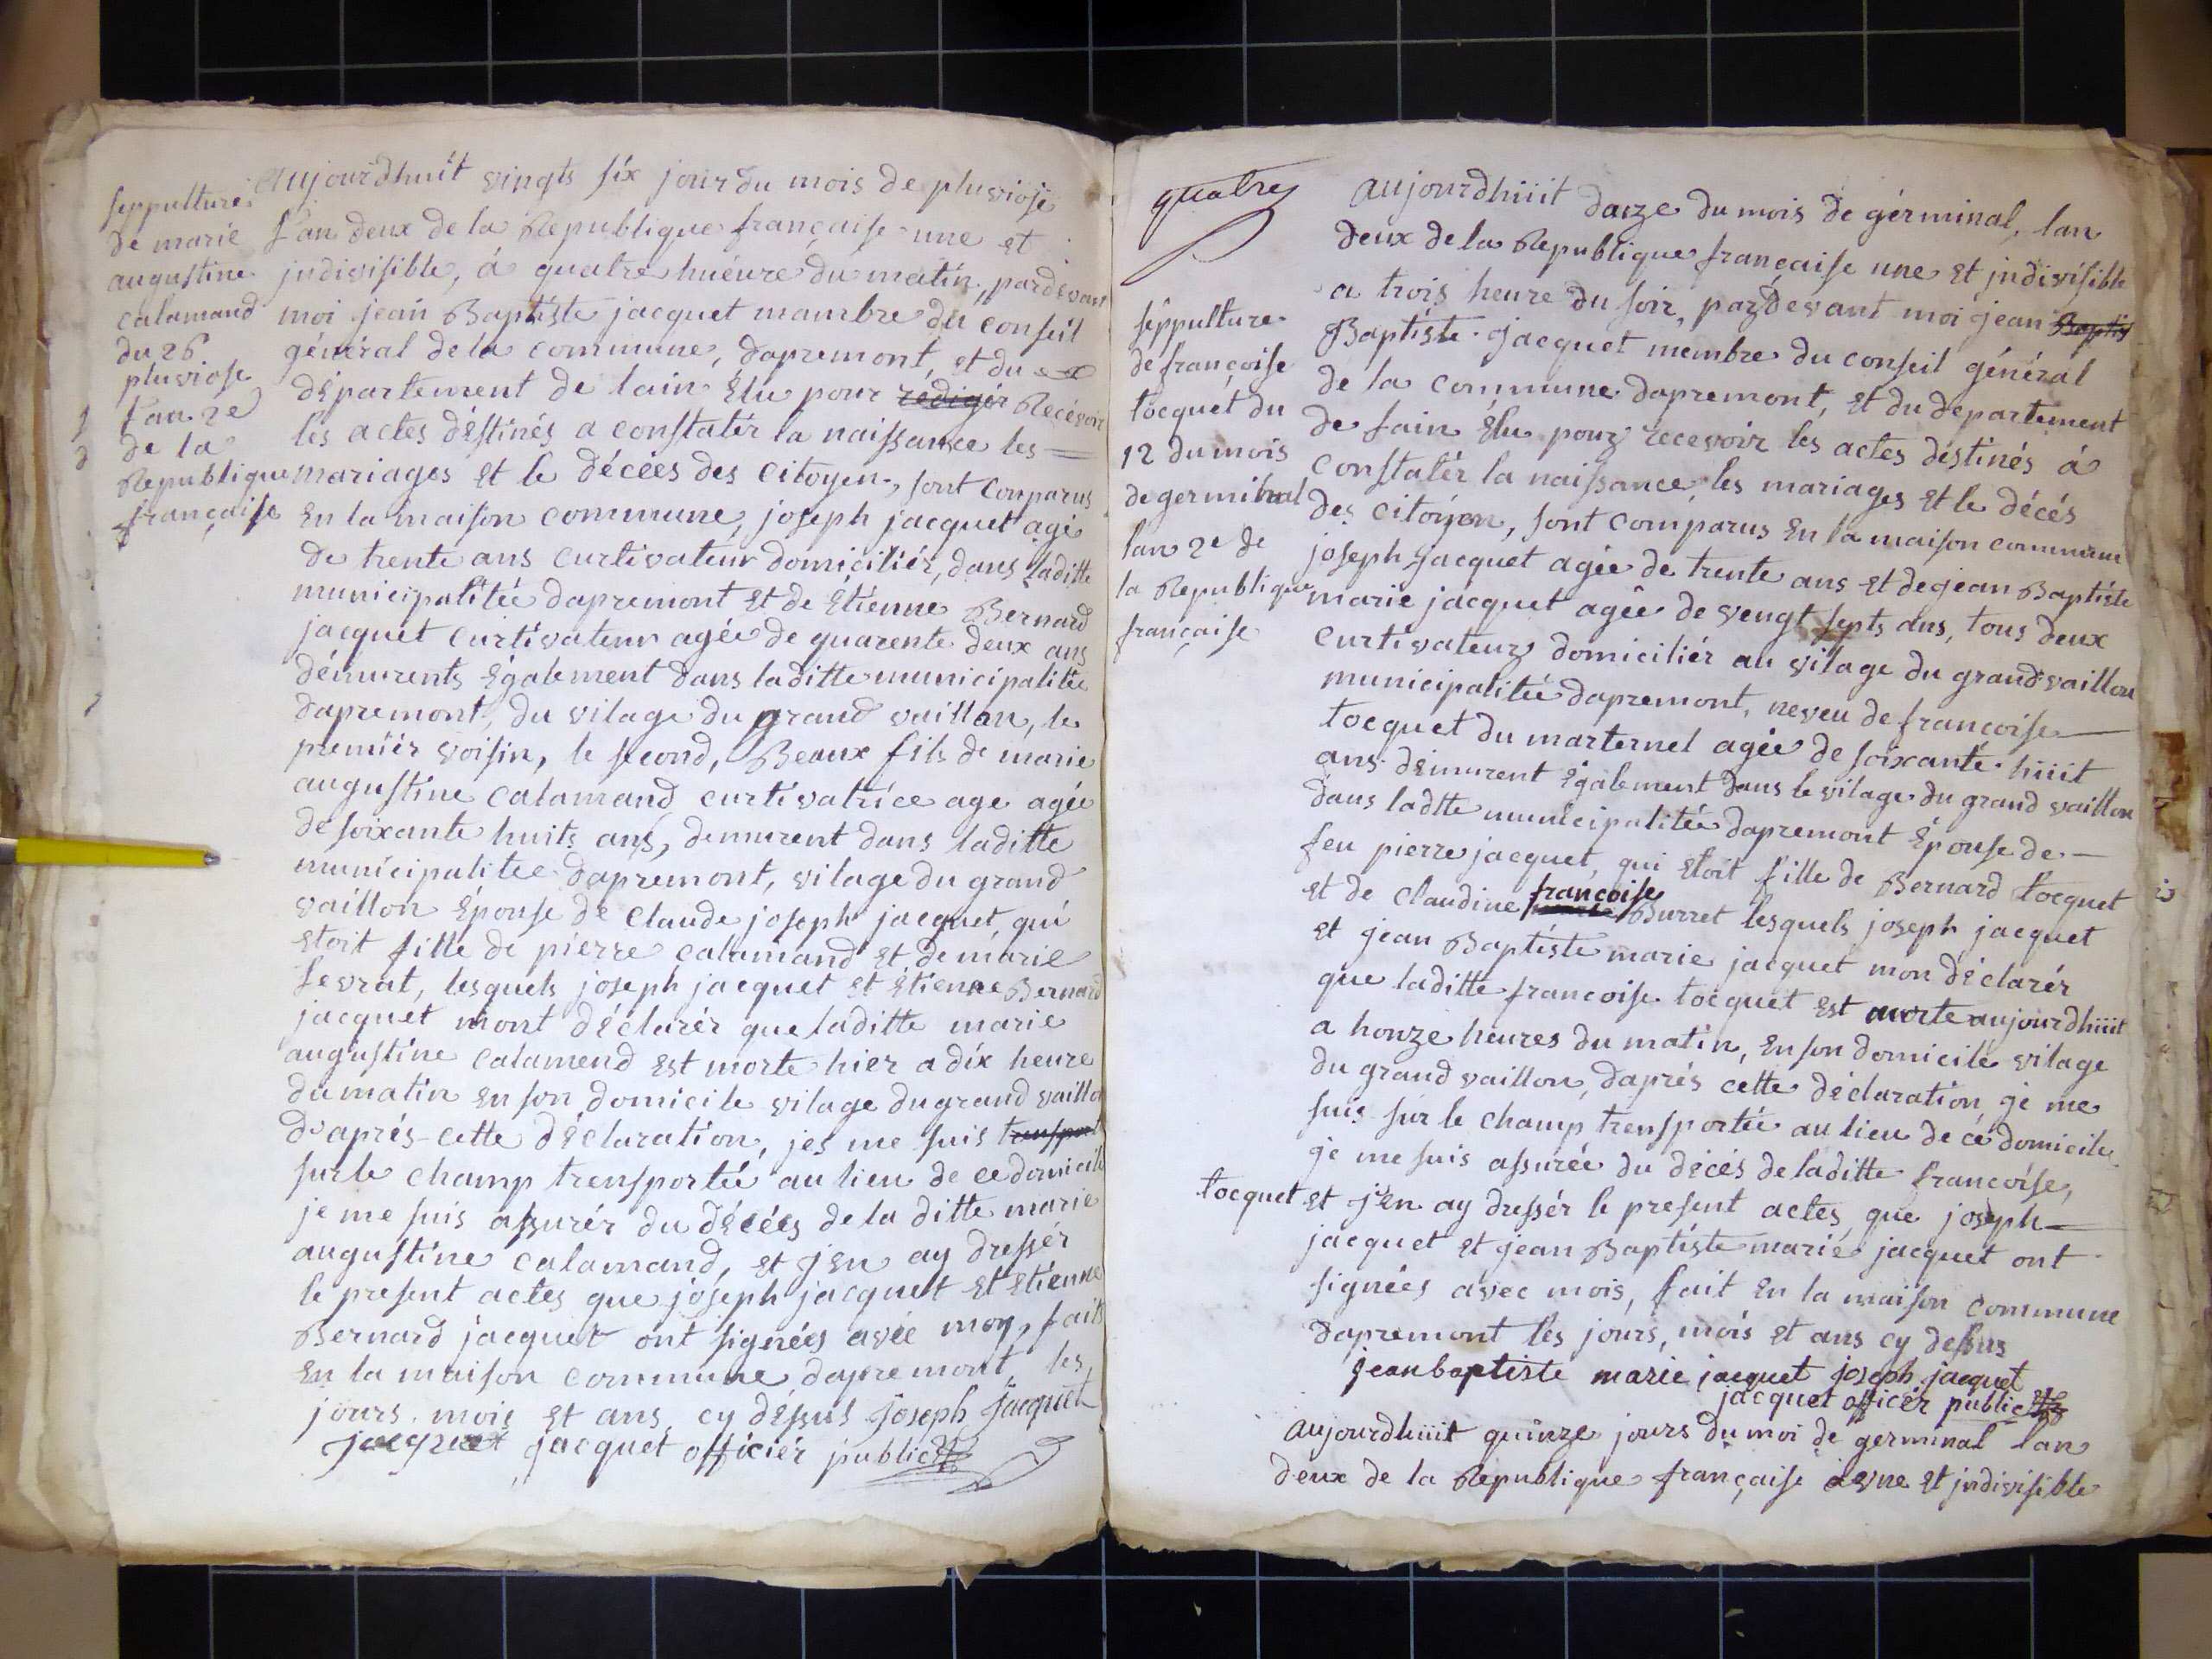 seppulture
de marie
augustine
calamand
du 26
pluviose
l'an 2e
de la
Republique
française
aujourdhuit vingts six jour du mois de pluviose
l'an deux de la Republique française une et
jndivisible, á quatre huéure du matin, pardevant
moi jean Baptiste jacquet mambre du conseil
général de la commune, dapremont, et du
département de lain élu pour redigér Recevoir
les actes déstinés a constatér la naissance les
mariages et le décées des citoyen, sont comparus
En la maison commune, joseph jacquet agé
de trente ans curtivateur domiciliér, dans laditte
municipalitée dapremont et de Étienne Bernard
jacquet curtivateur agée de quarente deux ans
démurents Également dans laditte municipalitée
dapremont, du vilage du grand vaillon, le
premiér voisin, le second, Beaux fils de marie
augustine calamand curtivatrice age agée
de soixante huits ans, demurent dans laditte
municipalitee dapremont, vilage du grand
vaillon Épouse de claude joseph jacquet, qui
etoit fille de pierre calamand et de marie
sevrat, lesquels joseph jacquet et étienne Bernard
jacquet mont déclarér que laditte marie
augustine calamend est morte hier a dix heure
du matin en son domicile vilage du grand vaillon
d'aprés cette déclaration, jes me suis transport
sur le champ trensportée au lieu de ce domicile
je me suis assurér du décées de la ditte marie
augustine calamand, et j'en ay dressér
le present actes que joseph jacquet et Étienne
Bernard jacquet ont signées avec moy, faits
En la maison commune dapremont, les
jours, mois et ans, cy déssus joseph jacquet
jacquet jacquet officiér public
quatre
sépputlure
de françoise
tocquet du
12 du mois
de germinal
lan 2e de
la Republique
française
aujourdhiiit douze du mois de gérminal, lan
deux de la Republique française une et jndivisible
a trois heure du soir, pardevant moi jean Baptis
Baptiste jacquet membre du conseil général
de la commune dapremont, et du departement
de lain Élu pour recevoir les actes déstinés á
constatér la naissance, les mariages et le décés
des citoyen, sont comparus En la maison commune
joseph jacquet agée de trente ans et de jean Baptiste
marie jacquet agée de vengt septs ans, tous deux
curtivateurs domiciliér au vilage du grand vaillon
municipalitée dapremont, neveu de francoise
tocquet du marternel agée de soixante hiiit
ans demurent également dans le vilage du grand vaillon
dans ladtte municipalitée dapremont Épouse de
feu pierre jacquet, qui etoit fille de Bernard tocquet
et de claudine francoise Burret lesquels joseph jacquet
et jean Baptiste marie jacquet mon déclarér
que laditte francoise tocquet est morte aujourdhiiit
a honze heures du matin, En son domicile vilage
du grand vaillon, daprés cette déclaration, je me
suis sur le champ trensportée au lieu de ce domicile
je me suis assurée du décés de laditte francoise,
tocquet et j'en ay dressér le present actes, que joseph
jacquet et jean Baptiste marie jacquet ont
signées avec mois, fait en la maison commune
dapremont les jours, mois et ans cy dessus
jean baptiste marie jacquet joseph jacquet
jacquet officér public
aujourdhiiit quinze jours du moi de germinal lan
deux de la Republique française une et jndivisible